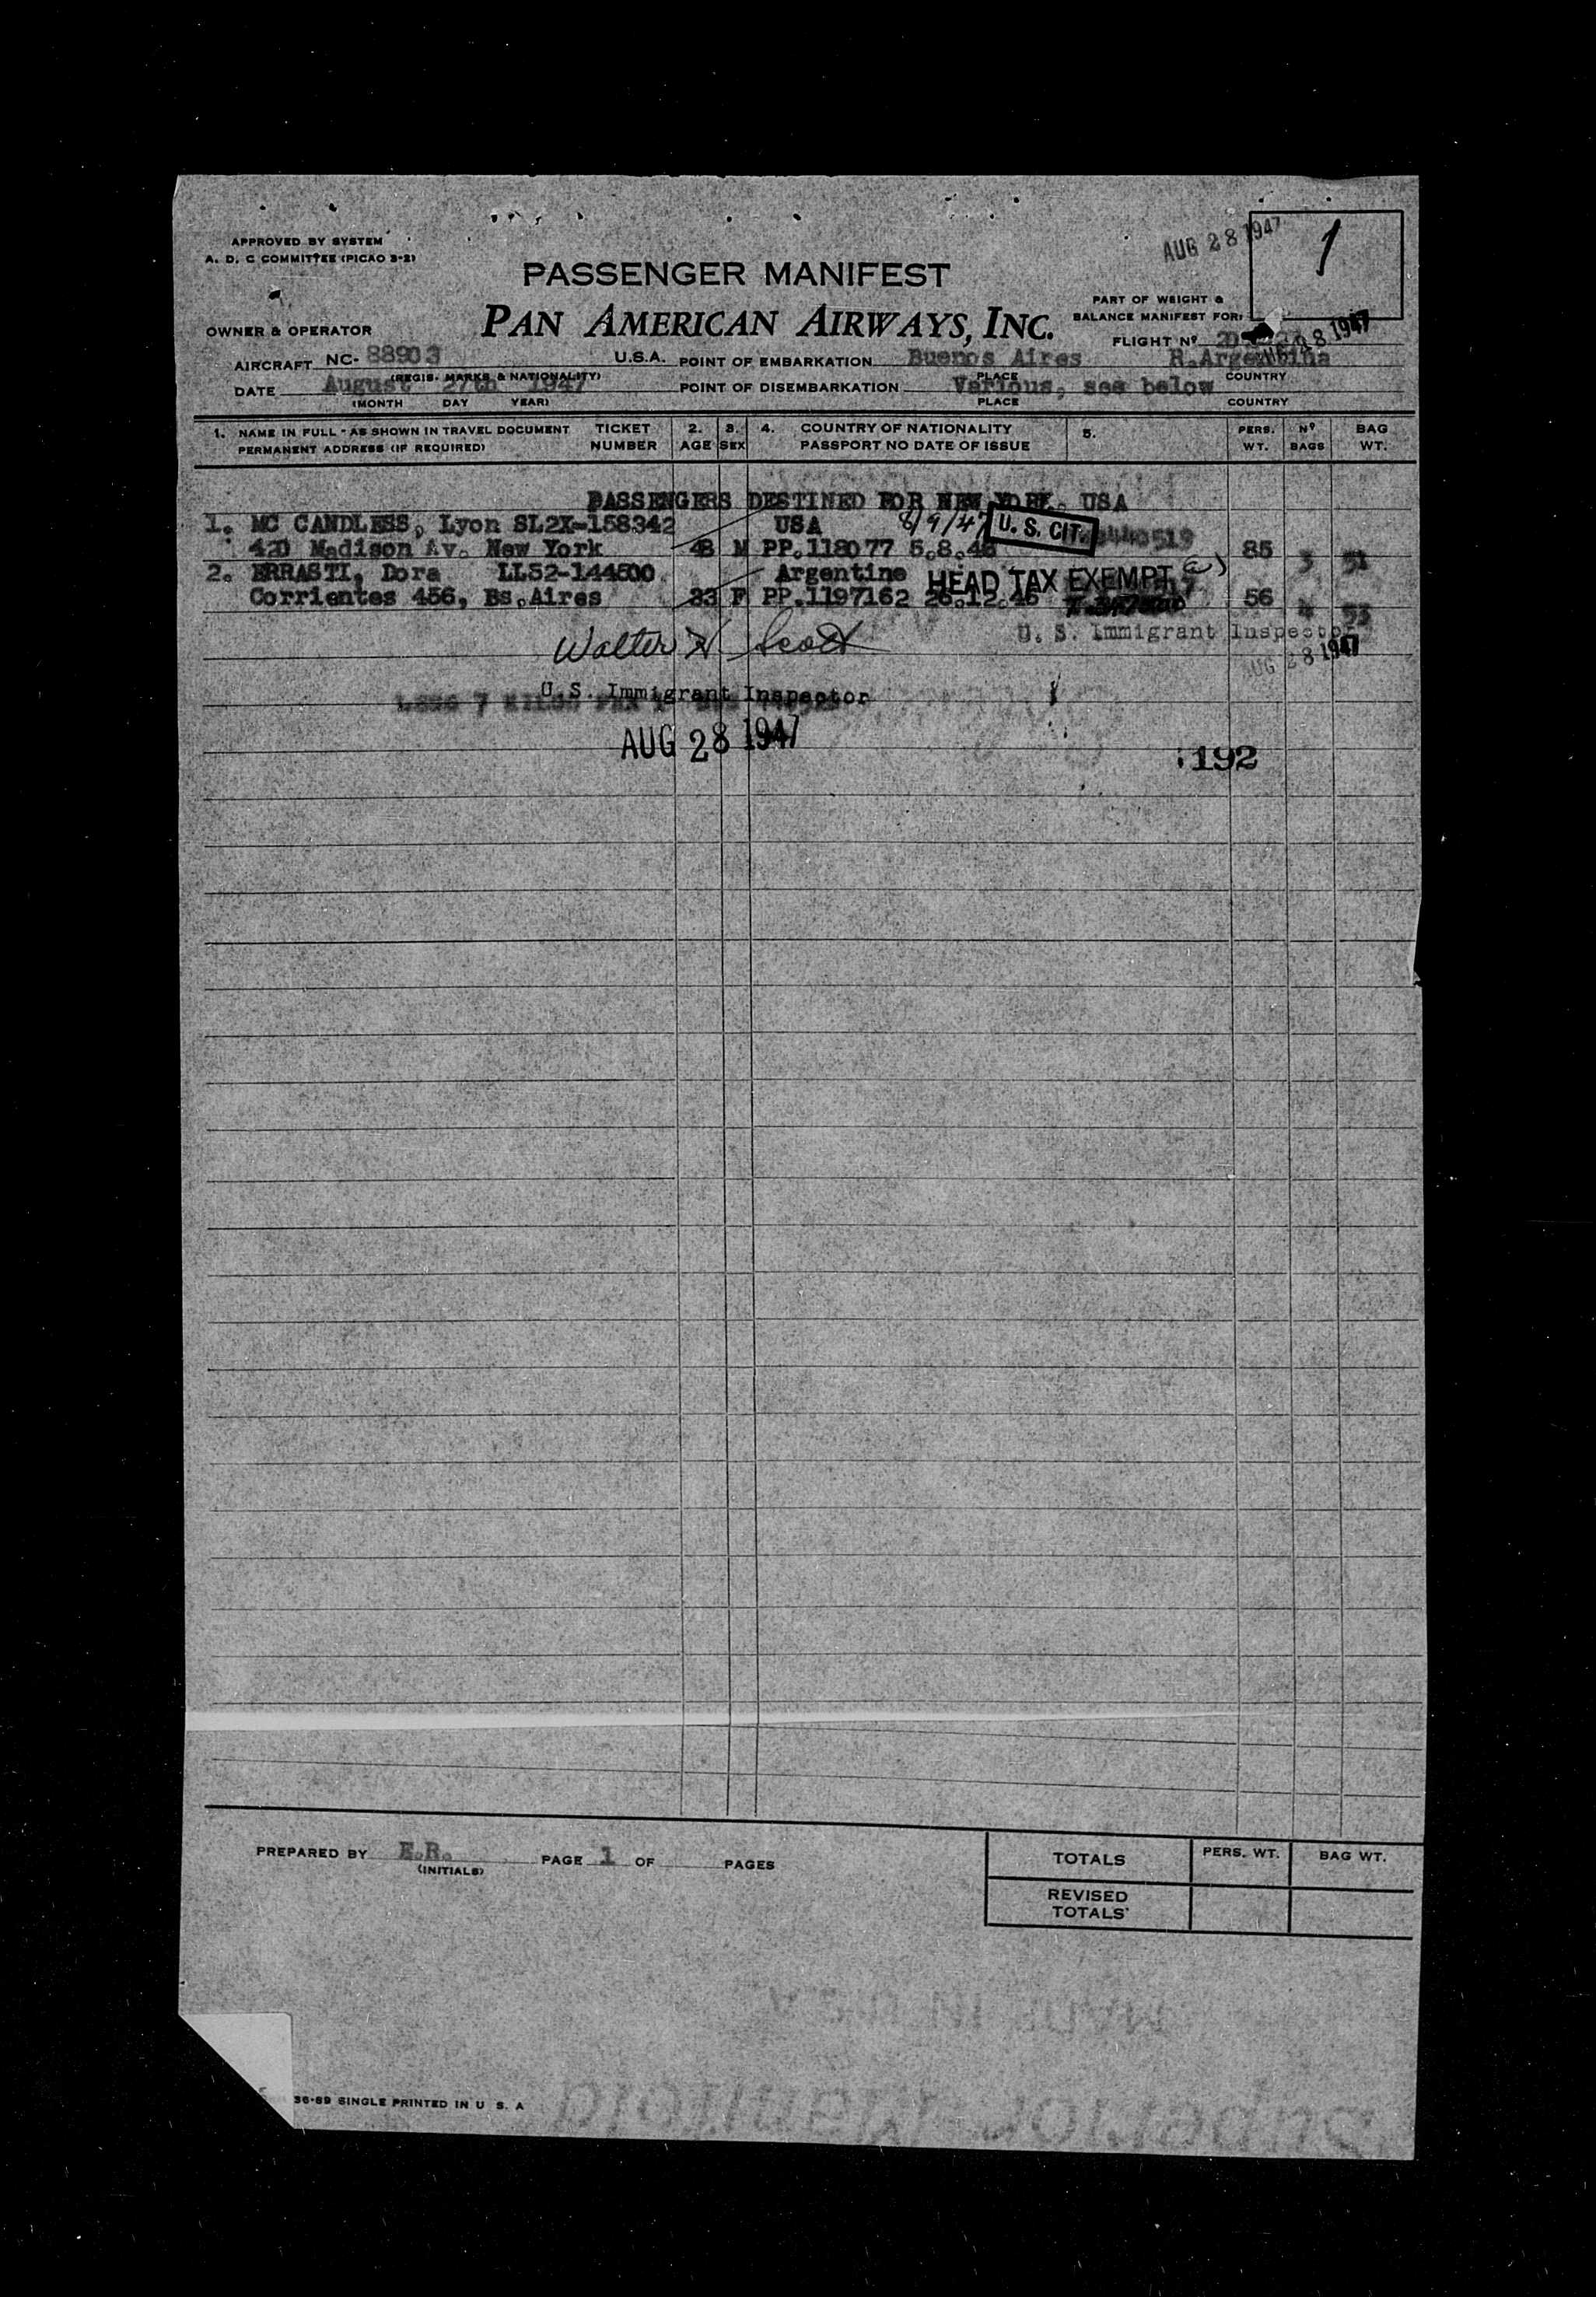 APPROVED BY SYSTEM
A. D. C COMMITTEE (PICAO 3-2)
AUG 28 1947
1
PASSENGER MANIFEST
PART OF WEIGHT &
BALANCE MANIFEST FOR:
OWNER & OPERATOR
PAN AMERICAN AIRWAYS, INC.
FLIGHT Nº
AIRCRAFT NC- 88903 U.S.A. POINT OF EMBARKATION Buenos Aires R.Argentina
(REGIS. MARKS & NATIONALITY) PLACE COUNTRY
DATE August 27th 1947 POINT OF DISEMBARKATION Various, see below
(MONTH DAY YEAR) PLACE COUNTRY
1. NAME IN FULL - AS SHOWN IN TRAVEL DOCUMENT TICKET 2. 3. 4. COUNTRY OF NATIONALITY 5. PERS. Nº BAG
PERMANENT ADDRESS (IF REQUIRED) NUMBER AGE SEX PASSPORT NO DATE OF ISSUE WT. BAGS WT.
PASSENGERS DESTINED FOR NEW YORK. USA
1. MC CANDLESS, Lyon SL2X-158342 USA 8/9/47 U. S. CIT.
420 Madison Av. New York 48 M PP.118077 5.8.46 85 3 51
2. ERRASTI, Dora LL52-144500 Argentine HEAD TAX EXEMPT
Corrientes 456, Bs.Aires 33 F PP.1197162 26.12.46 56 4 53
Walter H Scott
U. S. Immigrant Inspector
AUG 28 1947
U. S. Immigrant Inspector
AUG 28 1947
192
PREPARED BY E.R. PAGE 1 OF PAGES
(INITIALS)
TOTALS PERS. WT. BAG WT.
REVISED
TOTALS
36-89 SINGLE PRINTED IN U S. A
MADE IN U.S.A.
Superior Manifold